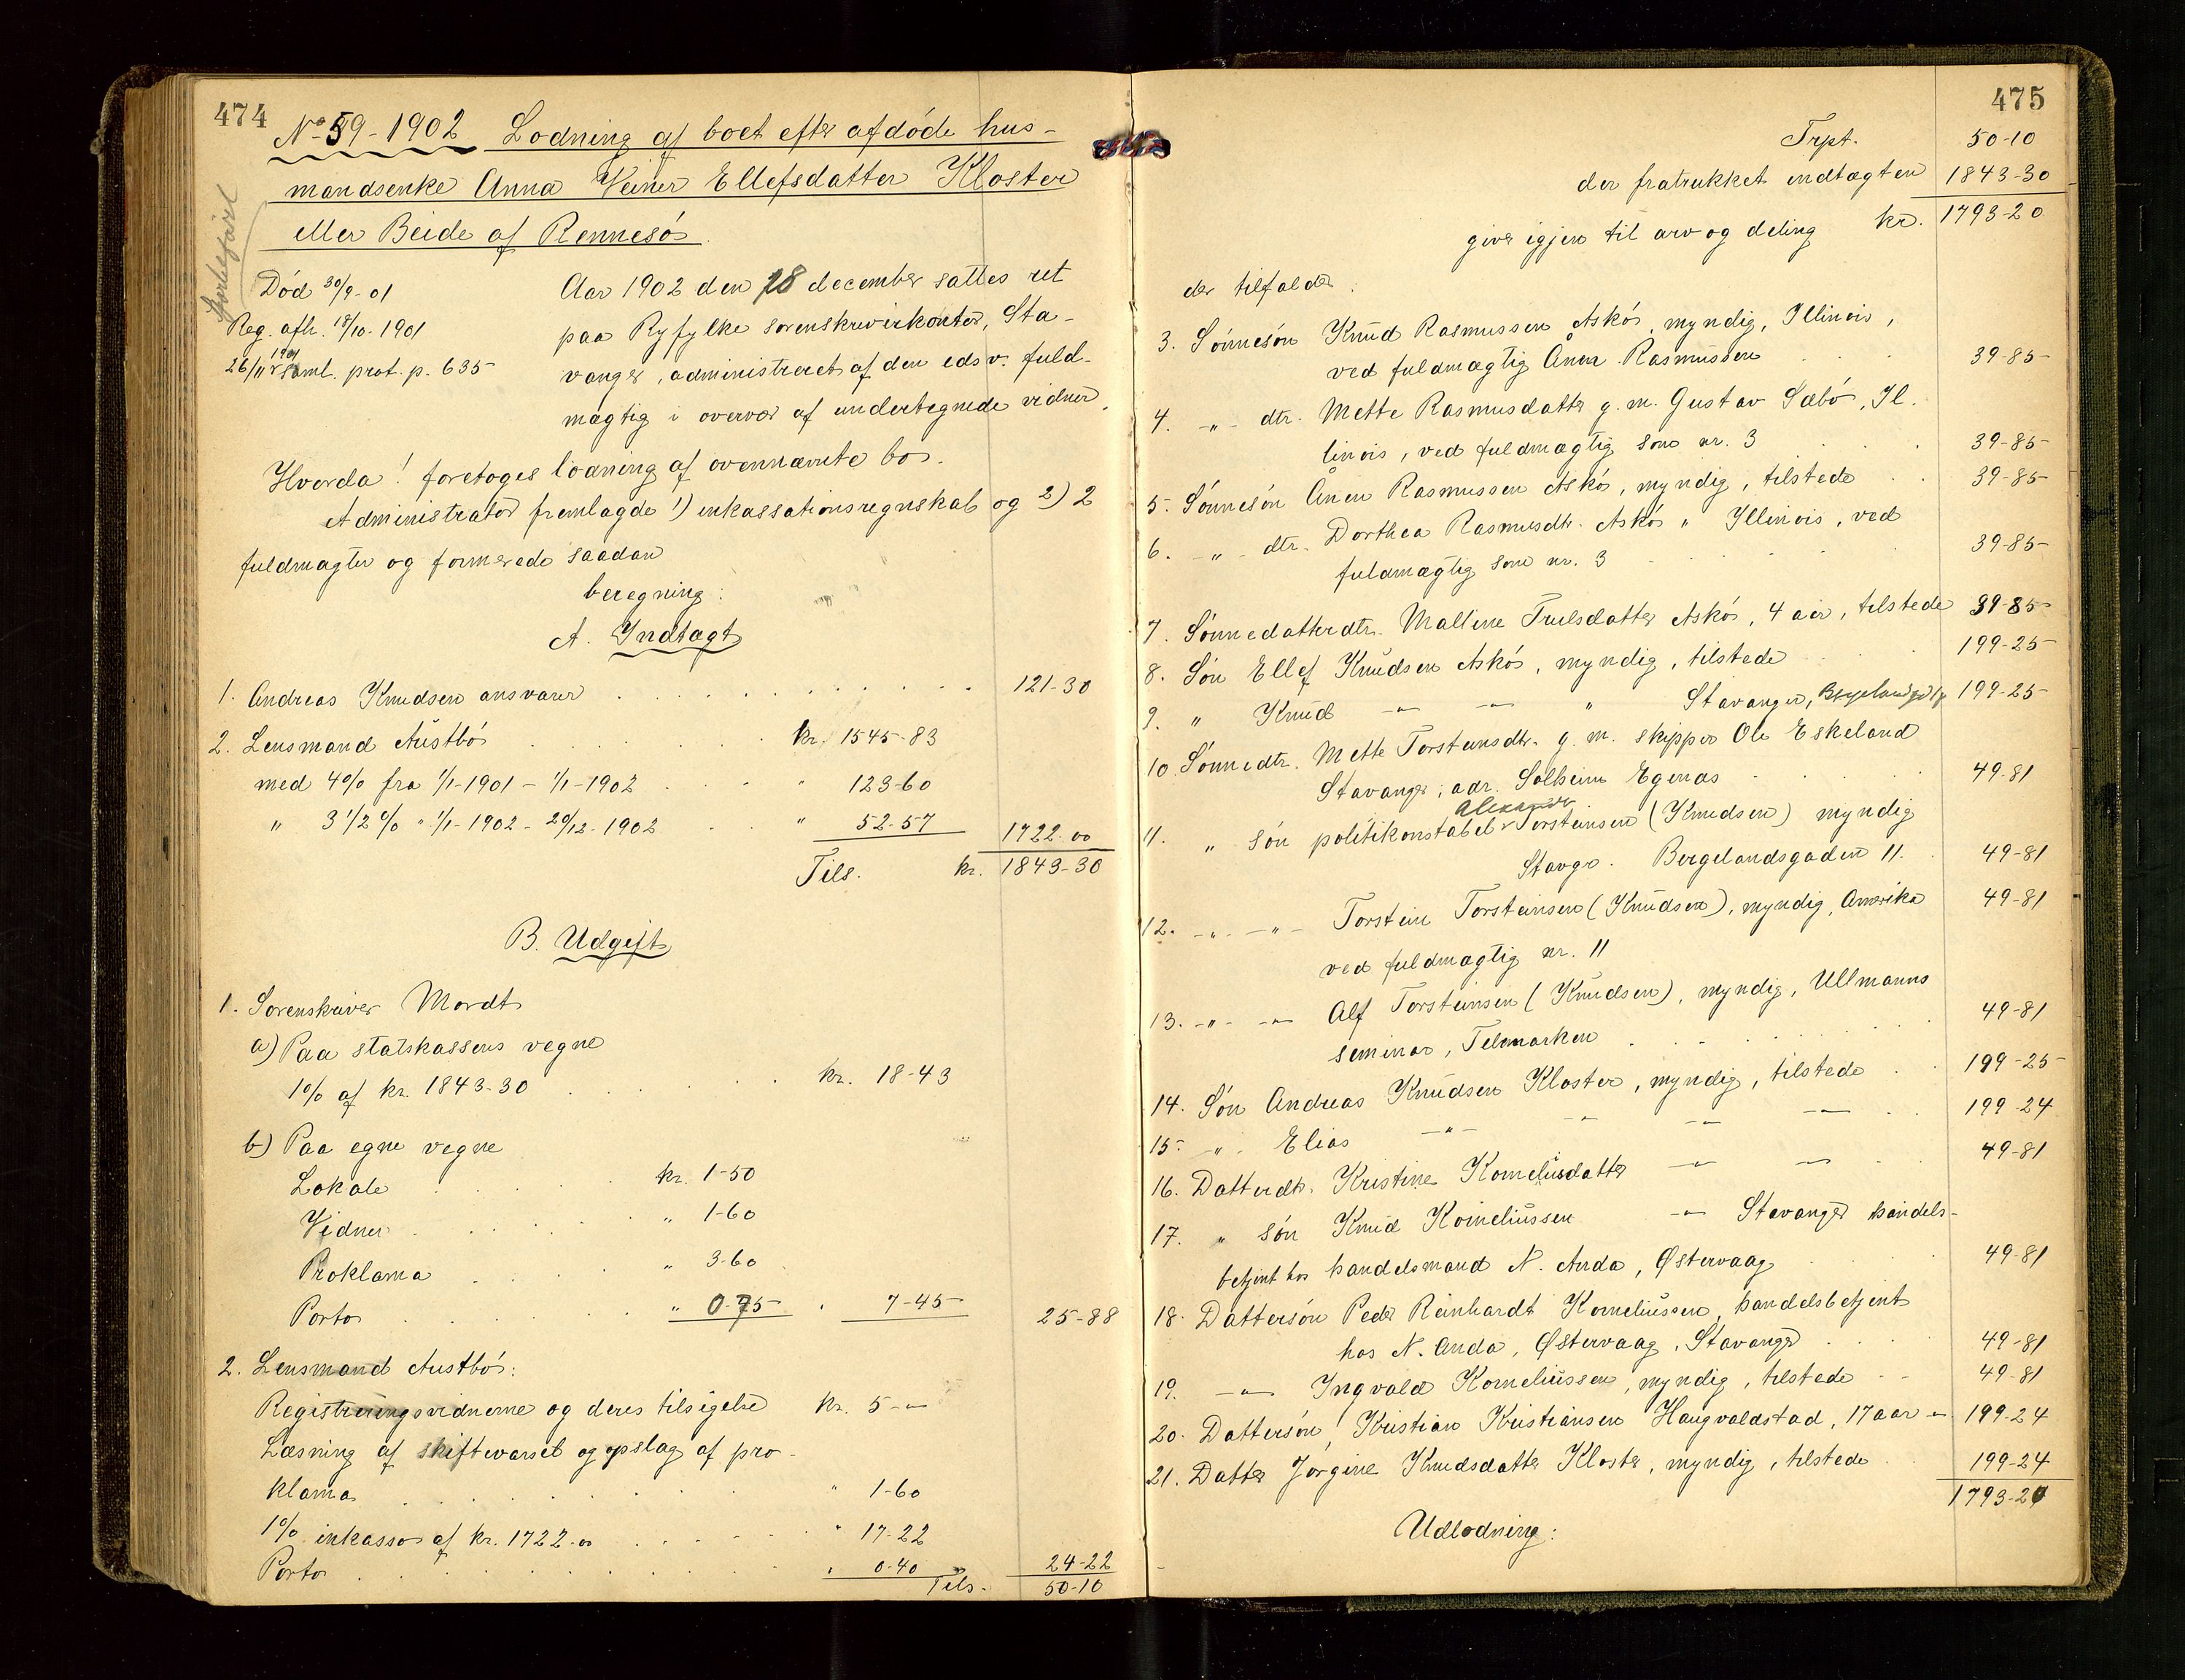 474
No 59-1902 Lodning af boet efter afdöde hus-
mandsenke Anna Ellefsdatter Kloster
eller Beide af Rennesö.
Död 30/9-01
Reg. afh. 18/10-1901
26/11 1901 saml. prot. p. 635
Aar 1902 den 18 december sattes ret
paa Ryfylke sorenskriverkontor, Sta-
vanger, administreret af den edsv. fuld-
mægtig i overvær af undertegnede vidner.
Hvorda! foretoges lodning af ovennævnte bo.
Administrator fremlagde 1) inkassationsregnskab og 2) 2
fuldmagter og formerede saadan
beregning:
A. Indtægt
1. Andreas Knudsen ansvarer . . . . 121-30
2. Lensmand Austbö . . . . kr. 1545-83
med 4% fra 1/1-1901 - 1/1-1902 . . . " 123-60
" 3 1/2 % " 1/1-1902 - 20/12-1902 . . " 52-57 1722.00
Tils. kr. 1843-30
B. Udgift
1. Sorenskriver Mordt
a) Paa statskassens vegne
1% af kr. 1843-30 . . . . kr. 18-43
b) Paa egne vegne
Lokale . . . . kr. 1-50
Vidner . . . . " 1-60
Proklama . . . . " 3-60
Porto . . . . " 0-75 " 7-45 25-88
2. Lensmand Austbö:
Registreringsvidnerne og deres tilsigelse kr. 5-"
Læsning af skiftevarsel og opslag af pro-
klama . . . . " 1-60
1% inkasso af kr. 1722.00 . . . . " 17-22
Porto . . . . " 0-40 24-22
Tils. 50-10
475
Trpt. 50-10
der fratrukket indtægten 1843-30
giver igjen til arv og deling kr. 1793-20
der tilfalder:
3. Sönnesön Knud Rasmussen Askö, myndig, Illinois,
ved fuldmægtig Ånen Rasmussen . . . 39-85
4. -"- dtr. Mette Rasmusdatter g. m. Gustav Sæbö, Il.
linois, ved fuldmægtig som nr. 3 . . . 39-85
5. Sönnesön Ånen Rasmussen Askö, myndig, tilstede . . 39-85
6. -"- dtr. Dorthea Rasmusdtr. Askö " Illinois, ved
fuldmægtig som nr. 3 . . . . 39-85
7. Sönnedatterdtr. Malline Trulsdatter Askö, 4 aar, tilstede 39-85
8. Sön Ellef Knudsen Askö, myndig, tilstede . . 199-25
9. " Knud -"- -"- " Stavanger, 199-25
10. Sönnedtr. Mette Torsteinsdtr. g. m. skipper Ole Eskeland
Stavanger, adr. Solheim Egenæs . . . . 49-81
Alexander
11. " sön politikonstabel Torsteinsen (Knudsen) myndig
Stavgr. Bergelandsgaden 11. . 49-81
12. -"- -"- Torstein Torsteinsen (Knudsen), myndig, Amerika 49-81
ved fuldmægtig nr. 11
13. -"- -"- Alf Torsteinsen (Knudsen), myndig, Ullmanns
seminar, Telemarken . . . . 49-81
14. Sön Andreas Knudsen Kloster, myndig, tilstede . . 199-25
15. -"- Elias -"- -"- -"- -"- . 199-24
16. Datterdtr. Kristine Korneliusdatter -"- -"- . 49-81
17. " sön Knud Korneliussen -"- Stavanger handels-
betjent hos handelsmand N. Anda, Østervaag . . 49-81
18. Dattersön Peder Reinhardt Korneliussen, handelsbetjent
hos N. Anda, Østervaag, Stavanger . . . 49-81
19. -"- Ingvald Korneliussen, myndig, tilstede . . 49-81
20. Dattersön Kristian Kristiansen Haugvaldstad, 17 aar -"- 199-24
21. Datter Jörgine Knudsdatter Kloster, myndig, tilstede . 199-24
1793-20
Udlodning: